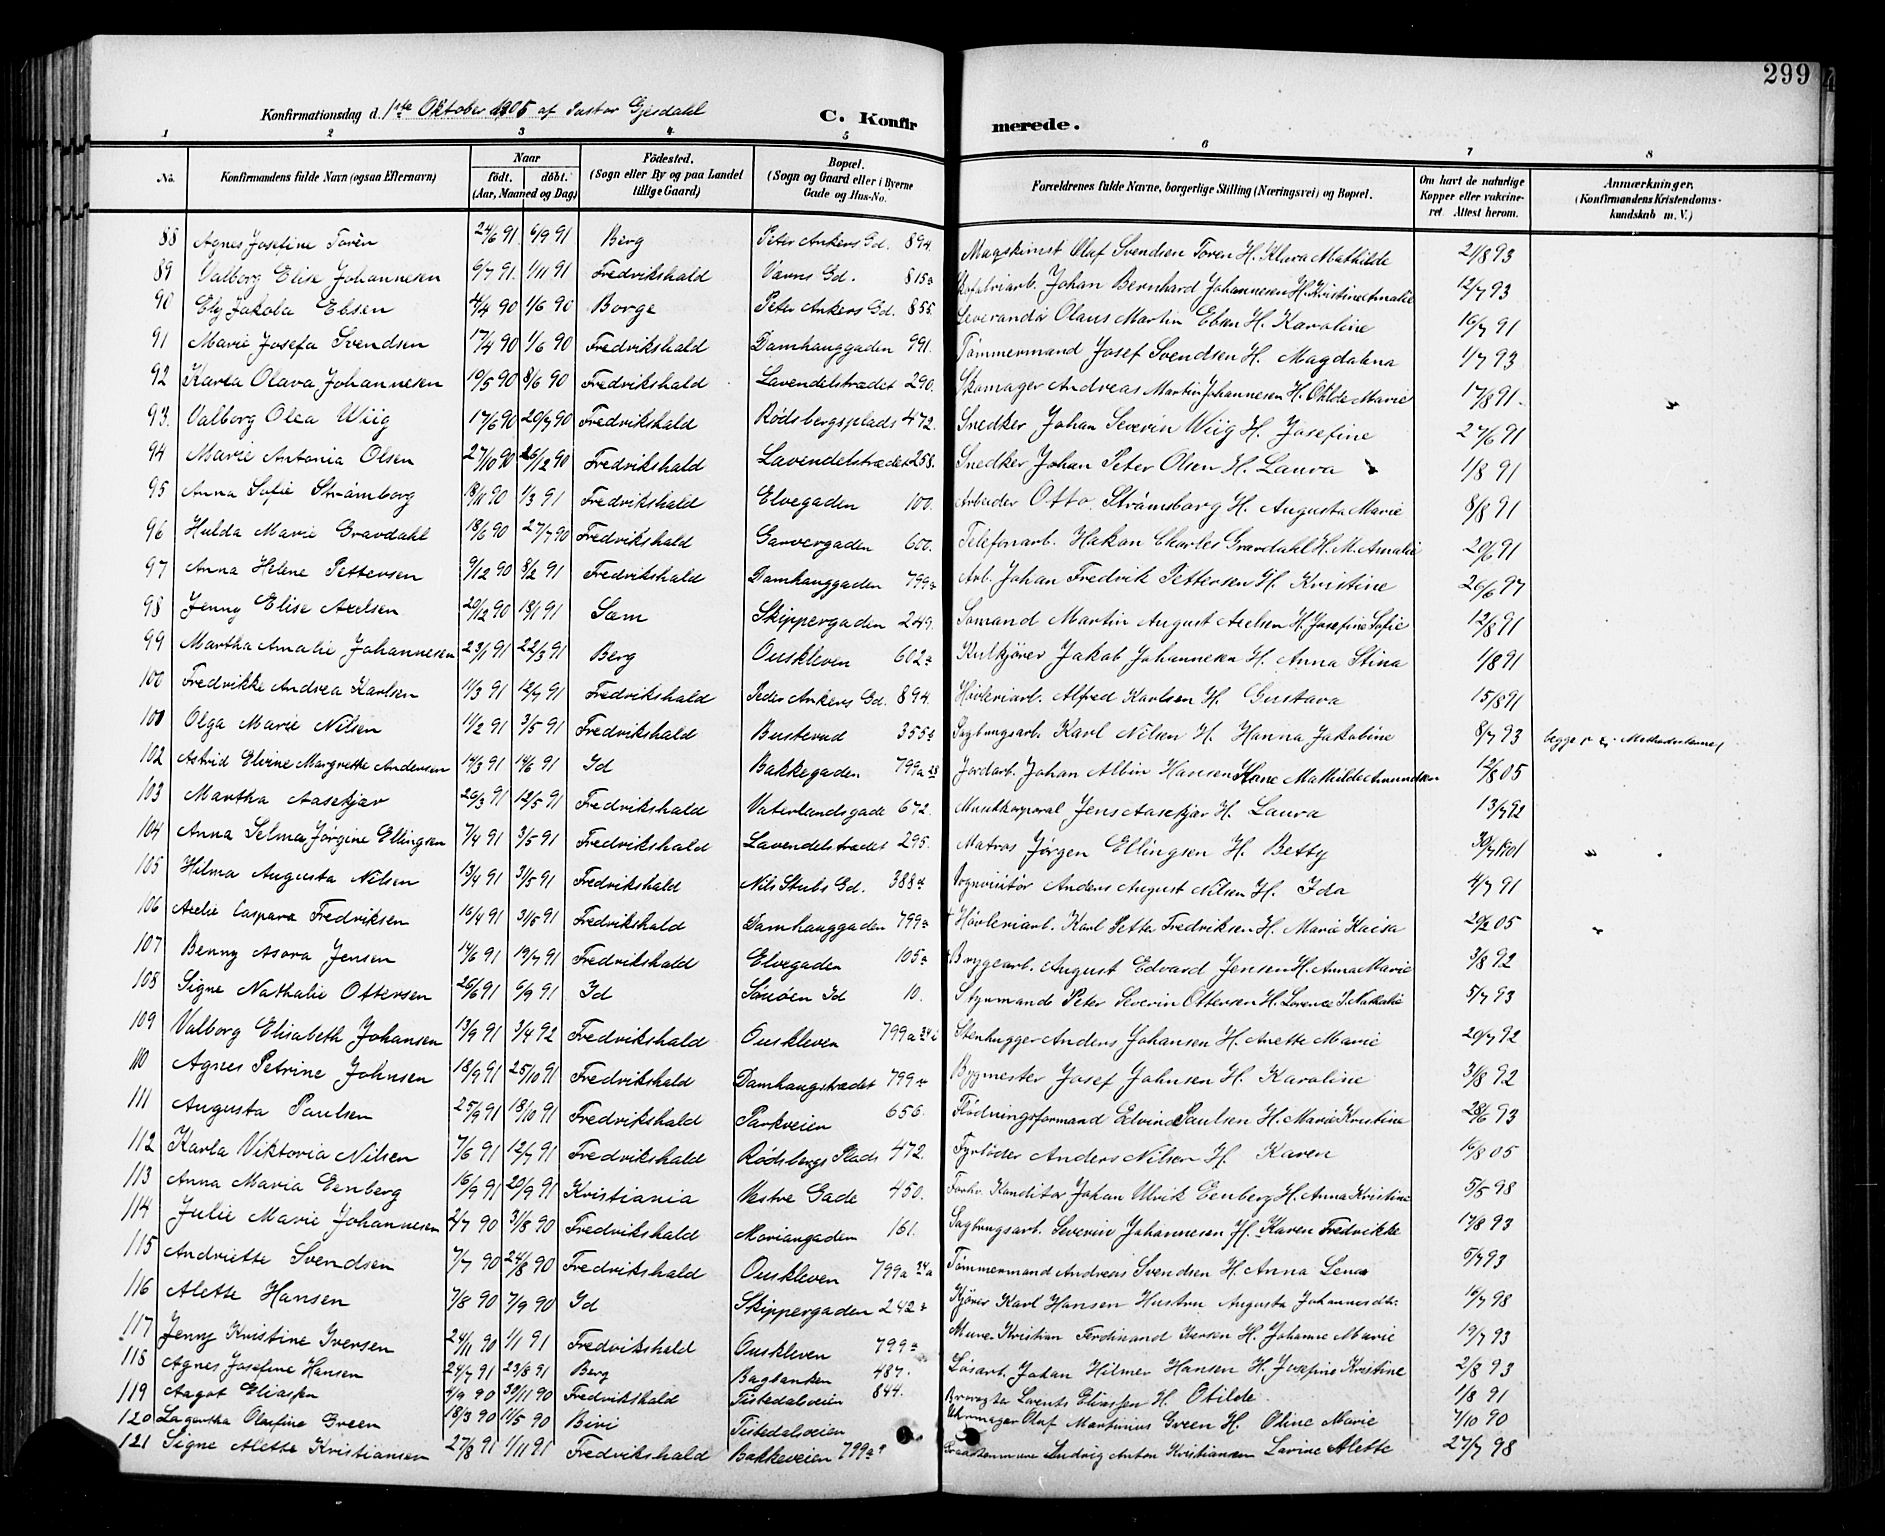 299
Konfirmationsdag d. 1ste Oktober 1905 af Pastor Gjesdahl C. Konfirmerede.
1 2 3 4 5 6 7 8
No. Konfirmandens fulde Navn (ogsaa Efternavn) Naar født. døbt. (Aar, Maaned og Dag) Fødested. (Sogn eller By og paa Landet tillige Gaard) Bopæl. (Sogn og Gaard eller i Byerne Gade og Hus-No. Forældrenes fulde Navne, borgerlige Stilling (Næringsvei) og Bopæl. Om havt de naturlige Kopper eller vaccineret. Attest herom. Anmærkninger. (Konfirmandens Kristendomskundskab m. V.)
88 Agnes Josefine Torén 24/6 91 6/9 91 Berg Peter Ankers Gd. 894. Olaf Svendsen Toren H. Klara Mathilde 21/8 93
89 Valborg Elise Johannesen 6/7 91. 1/11 91 Fredrikshald Vavns Gd. 815a Johan Bernhard Johannesen H. Kristine Amalie 12/7 93
90 Ely Jakola Ebsen 4/4 90 1/6 90 Borge Peter Ankers Gd. 855. Leverandø Olaus Martin Ebsen H. Karoline 16/7 91
91 Marie Josefa Svendsen 17/4 90 1/6 90 Fredrikshald Damhauggaden 991. Tømmermand Josef Svendsen H. Magdalena 1/7 93
92 Karla Olava Johannesen 19/5 90 8/6 90 Fredrikshald Lavendelstrædet 290. Skomager Andreas Martin Johannesen H. Otilde Marie 17/8 91.
93. Valborg Olea Wiig 17/6 90 20/7 90 Fredrikshald Rødsbergsplads 472. Snedker Johan Severin Wiig H. Josefine 27/6 91
94 Marie Antonia Olsen 27/10 90 26/12 90 Fredrikshald Lavendelstrædet 258. Snedker Johan Peter Olsen H. Laura 1/8 91
95 Anna Sofie Strömborg 18/11 90 1/3 91 Fredrikshald Elvegaden 100. Arbeider Otto Strömborg H. Augusta Marie 8/8 91
96 Hulda Marie Gravdahl 18/6 90 27/7 90 Fredrikshald Garvergaden 600. Telefonarb. Hakon Charles Gravdahl H. M. Amalie 20/6 91
97 Anna Helene Pettersen 9/12 90 8/2 91 Fredrikshald Damhauggaden 799a Arb. Johan Fredrik Pettersen H. Kristine 26/6 97
98 Jenny Elise Axelsen 20/12 90 18/1 91 Sam Skippergaden 249. Sømand Martin August Axelsen H. Josefine Sofie 12/8 91
99 Martha Amalie Johannesen 23/1 91 22/3 91 Berg Ouskleven 602a Kulkjører Jakob Johannesen H. Anna Stina 1/8 91
100 Fredrikke Andrea Karlsen 11/3 91 12/7 91 Fredrikshald Peder Ankers Gd. 894. Høvleriarb. Alfred Karlsen H. Gustava 15/8 91
101 Olga Marie Nilsen 11/2 91 3/5 91 Fredrikshald Busterud 355a Sagbrugsarb. Karl Nilsen H. Hanna Jakobine 8/7 93 begge
102 Astrid Elvine Margrethe Andersen 14/3 91 14/6 91 Id Bakkegaden 799a 28 Jordarb. Johan Albin Hansen Hane Mathilde Amundsen 12/8 05
103 Martha Aasekjær 26/3 91 12/5 91 Fredrikshald Vaterlandsgade 672. Musikkorporal Jens Aasekjær H. Laura 13/7 92
104 Anna Selma Jørgine Ellingsen 7/4 91 3/5 91 Fredrikshald Lavendelstrædet 295. Matros Jørgen Ellingsen H. Betty 30/7 1901
105 Hilma Augusta Nilsen 13/4 91 31/5 91 Fredrikshald Nils Stubs Gd. 388a Anders August Nilsen H. Ida 4/7 91
106 Axelie Caspara Fredriksen 16/4 91 31/5 91 Fredrikshald Damhauggaden 799a Høvleriarb. Karl Petter Fredriksen H. Marie Kaisa 20/2 05
107 Benny Asora Jensen 14/6 91 19/7 91 Fredrikshald Elvegaden 105a Bryggearb. August Edvard Jensen H. Anna Marie 3/8 92
108 Signe Nathalie Ottersen 26/6 91 6/9 91 Id Sauøen Id 10. Styrmand Peter Severin Ottersen H. Lorence J. Nathalie 5/7 93
109 Valborg Elisabeth Johansen 13/9 91 3/4 92 Fredrikshald Ouskleven 799a 34 Stenhugger Anders Johansen H. Anette Marie 20/7 92
110 Agnes Petrine Johnsen 18/9 91 25/10 91 Fredrikshald Damhaugstrædet 799a Bygmester Josef Johnsen H. Karoline 3/8 92
111 Augusta Paulsen 25/9 91 18/10 91 Fredrikshald Parkveien 656. Flødningsformand Edvind Paulsen H. Marie Kristine 28/6 93
112 Karla Viktoria Nilsen 7/6 91 12/7 91 Fredrikshald Rødsbergs Plads 472. Fyrbøder Anders Nilsen H. Karen 16/8 05
113 Anna Maria Eenberg 16/9 91 20/9 91 Kristiania Vestre Gade 450. Forhv. Konditor Johan Ulrik Eenberg H. Anna Kristine 5/5 98
114 Julie Marie Johannesen 2/7 90 31/8 90 Fredrikshald Moriangaden 161. Sagbrugsarb. Severin Johannesen H. Karen Fredrikke 17/8 93
115 Andriette Svendsen 7/7 90 24/8 90 Fredrikshald Ouskleven 799a 34a Tømmermand Andreas Svendsen H. Anna Lena 5/7 93
116 Alette Hansen 7/8 90 7/9 90 Id Skippergaden 242a Kjører Karl Hansen Hustru Augusta Johannesdtr. 14/7 98
117 Jenny Kristine Iversen 24/11 90 1/1 91 Fredrikshald Ouskleven 799a Murer Kristian Ferdinand Iversen H. Johanne Marie 19/7 93
118 Agnes Josefine Hansen 24/7 91 23/8 91 Berg Bagbanken 487. Løsarb. Johan Hilmer Hansen H. Josefine Kristine 2/8 93
119 Aagot Eliassen 4/9 90 30/11 90 Fredrikshald Tistedalsveien 844. Lorents Eliassen H. Otilde 1/8 91
120 Lagertha Olufine Green 18/3 90 11/5 90 Biri Tistedalsveien Uhrmager Oluf Martinius Green H. Oline Marie 7/10 90
121 Signe Alette Kristiansen 27/8 91 1/11 91 Fredrikshald Bakkeveien 799a Ludvig Anton Kristiansen Lavine Alette 27/7 98